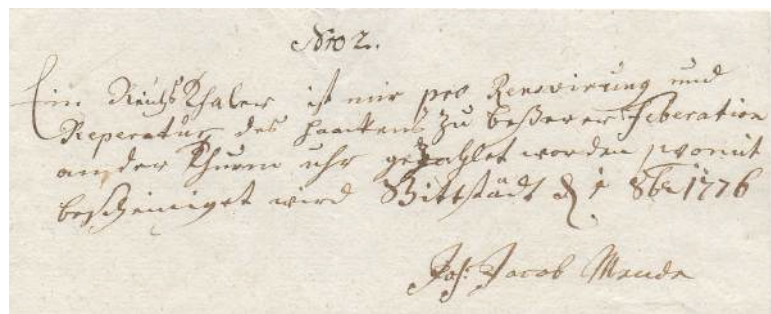 Nro 2.
Ein ReichsThaler ist mir pro Renovirung und
Reperatur des Haackens zu beßerer Feberation
an der Thurm uhr gezahlet worden, womit
bescheiniget wird Bittstädt d 1 8br 1776
Joh: Jacob Mende